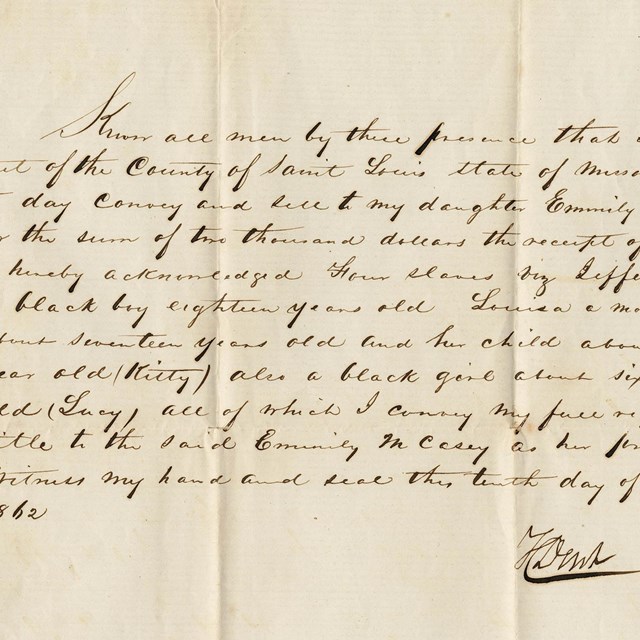 Know all men by these presence that
of the County of Saint Louis state of Misso
day Convey and sell to my daughter Emmily
the sum of two thousand dollars the receipt of
hereby acknowledged Four slaves viz Jeffe
black boy eighteen years old Louisa a
seventeen years old and her child abou
old (Kitty) also a black girl about
(Lucy) all of which I convey my full
to the said Emmily M Casey as her
Witness my hand and seal this tenth day of
1862
F Dent